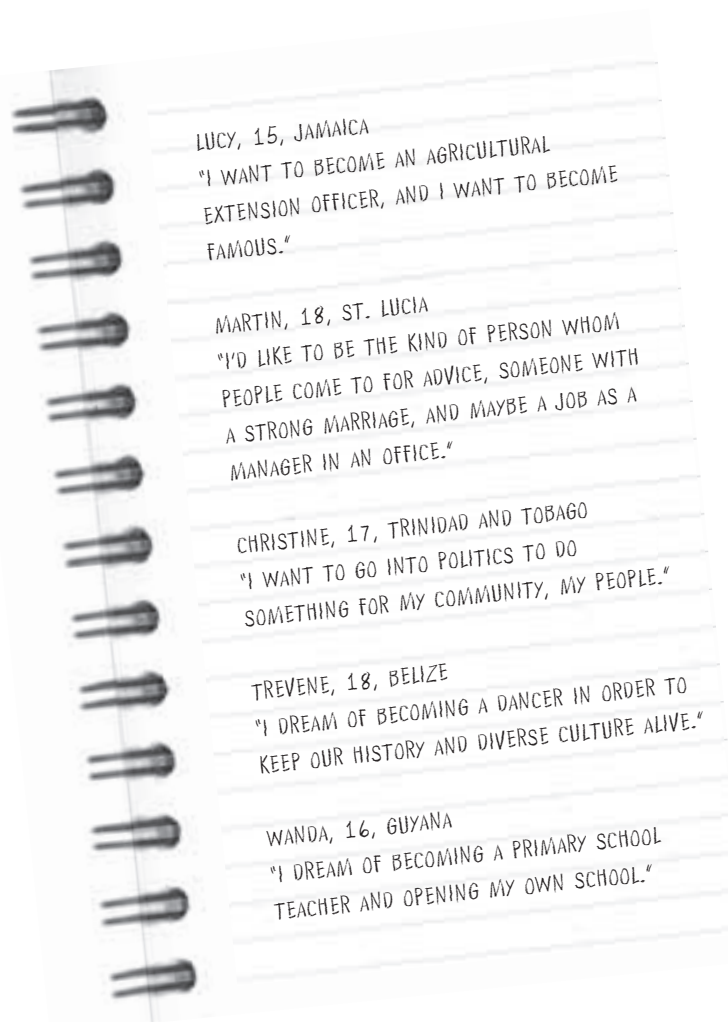 LUCY, 15, JAMAICA
"I WANT TO BECOME AN AGRICULTURAL
EXTENSION OFFICER, AND I WANT TO BECOME
FAMOUS."
MARTIN, 18, ST. LUCIA
"I'D LIKE TO BE THE KIND OF PERSON WHOM
PEOPLE COME TO FOR ADVICE, SOMEONE WITH
A STRONG MARRIAGE, AND MAYBE A JOB AS A
MANAGER IN AN OFFICE."
CHRISTINE, 17, TRINIDAD AND TOBAGO
"I WANT TO GO INTO POLITICS TO DO
SOMETHING FOR MY COMMUNITY, MY PEOPLE."
TREVENE, 18, BELIZE
"I DREAM OF BECOMING A DANCER IN ORDER TO
KEEP OUR HISTORY AND DIVERSE CULTURE ALIVE."
WANDA, 16, GUYANA
"I DREAM OF BECOMING A PRIMARY SCHOOL
TEACHER AND OPENING MY OWN SCHOOL."